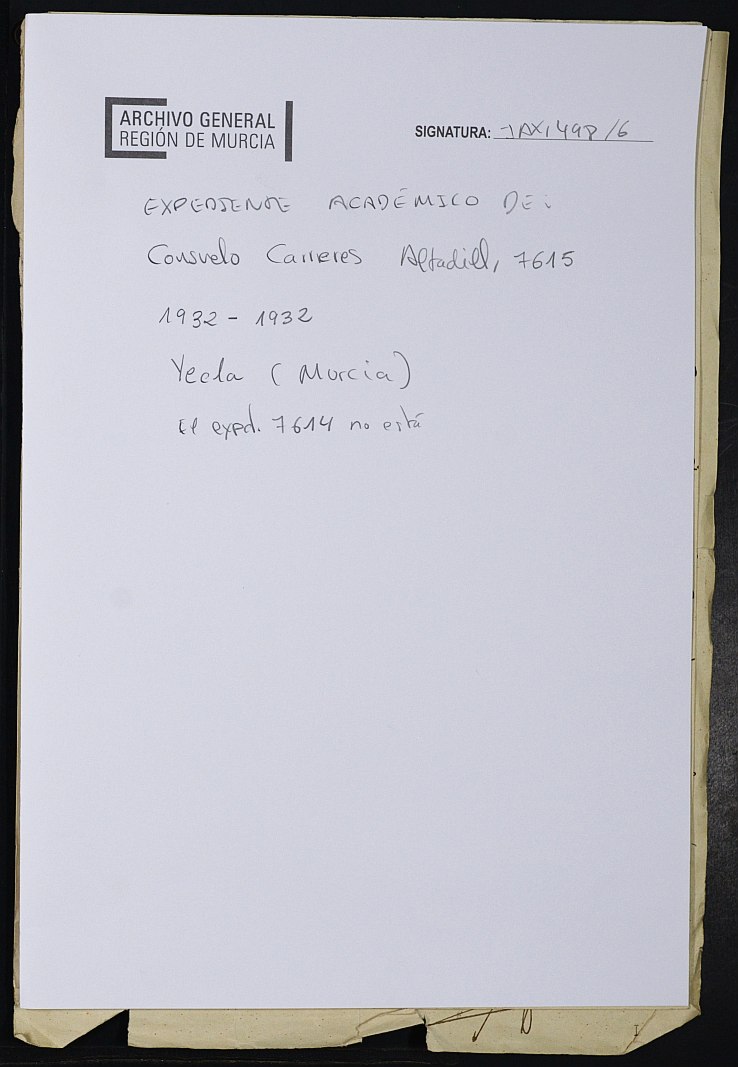 ARCHIVO GENERAL
REGIÓN DE MURCIA
SIGNATURA: JAX,498/6
EXPEDIENTE ACADÉMICO DE:
Consuelo Carreres Altadill, 7615
1932 - 1932
Yecla (Murcia)
El exped. 7614 no está